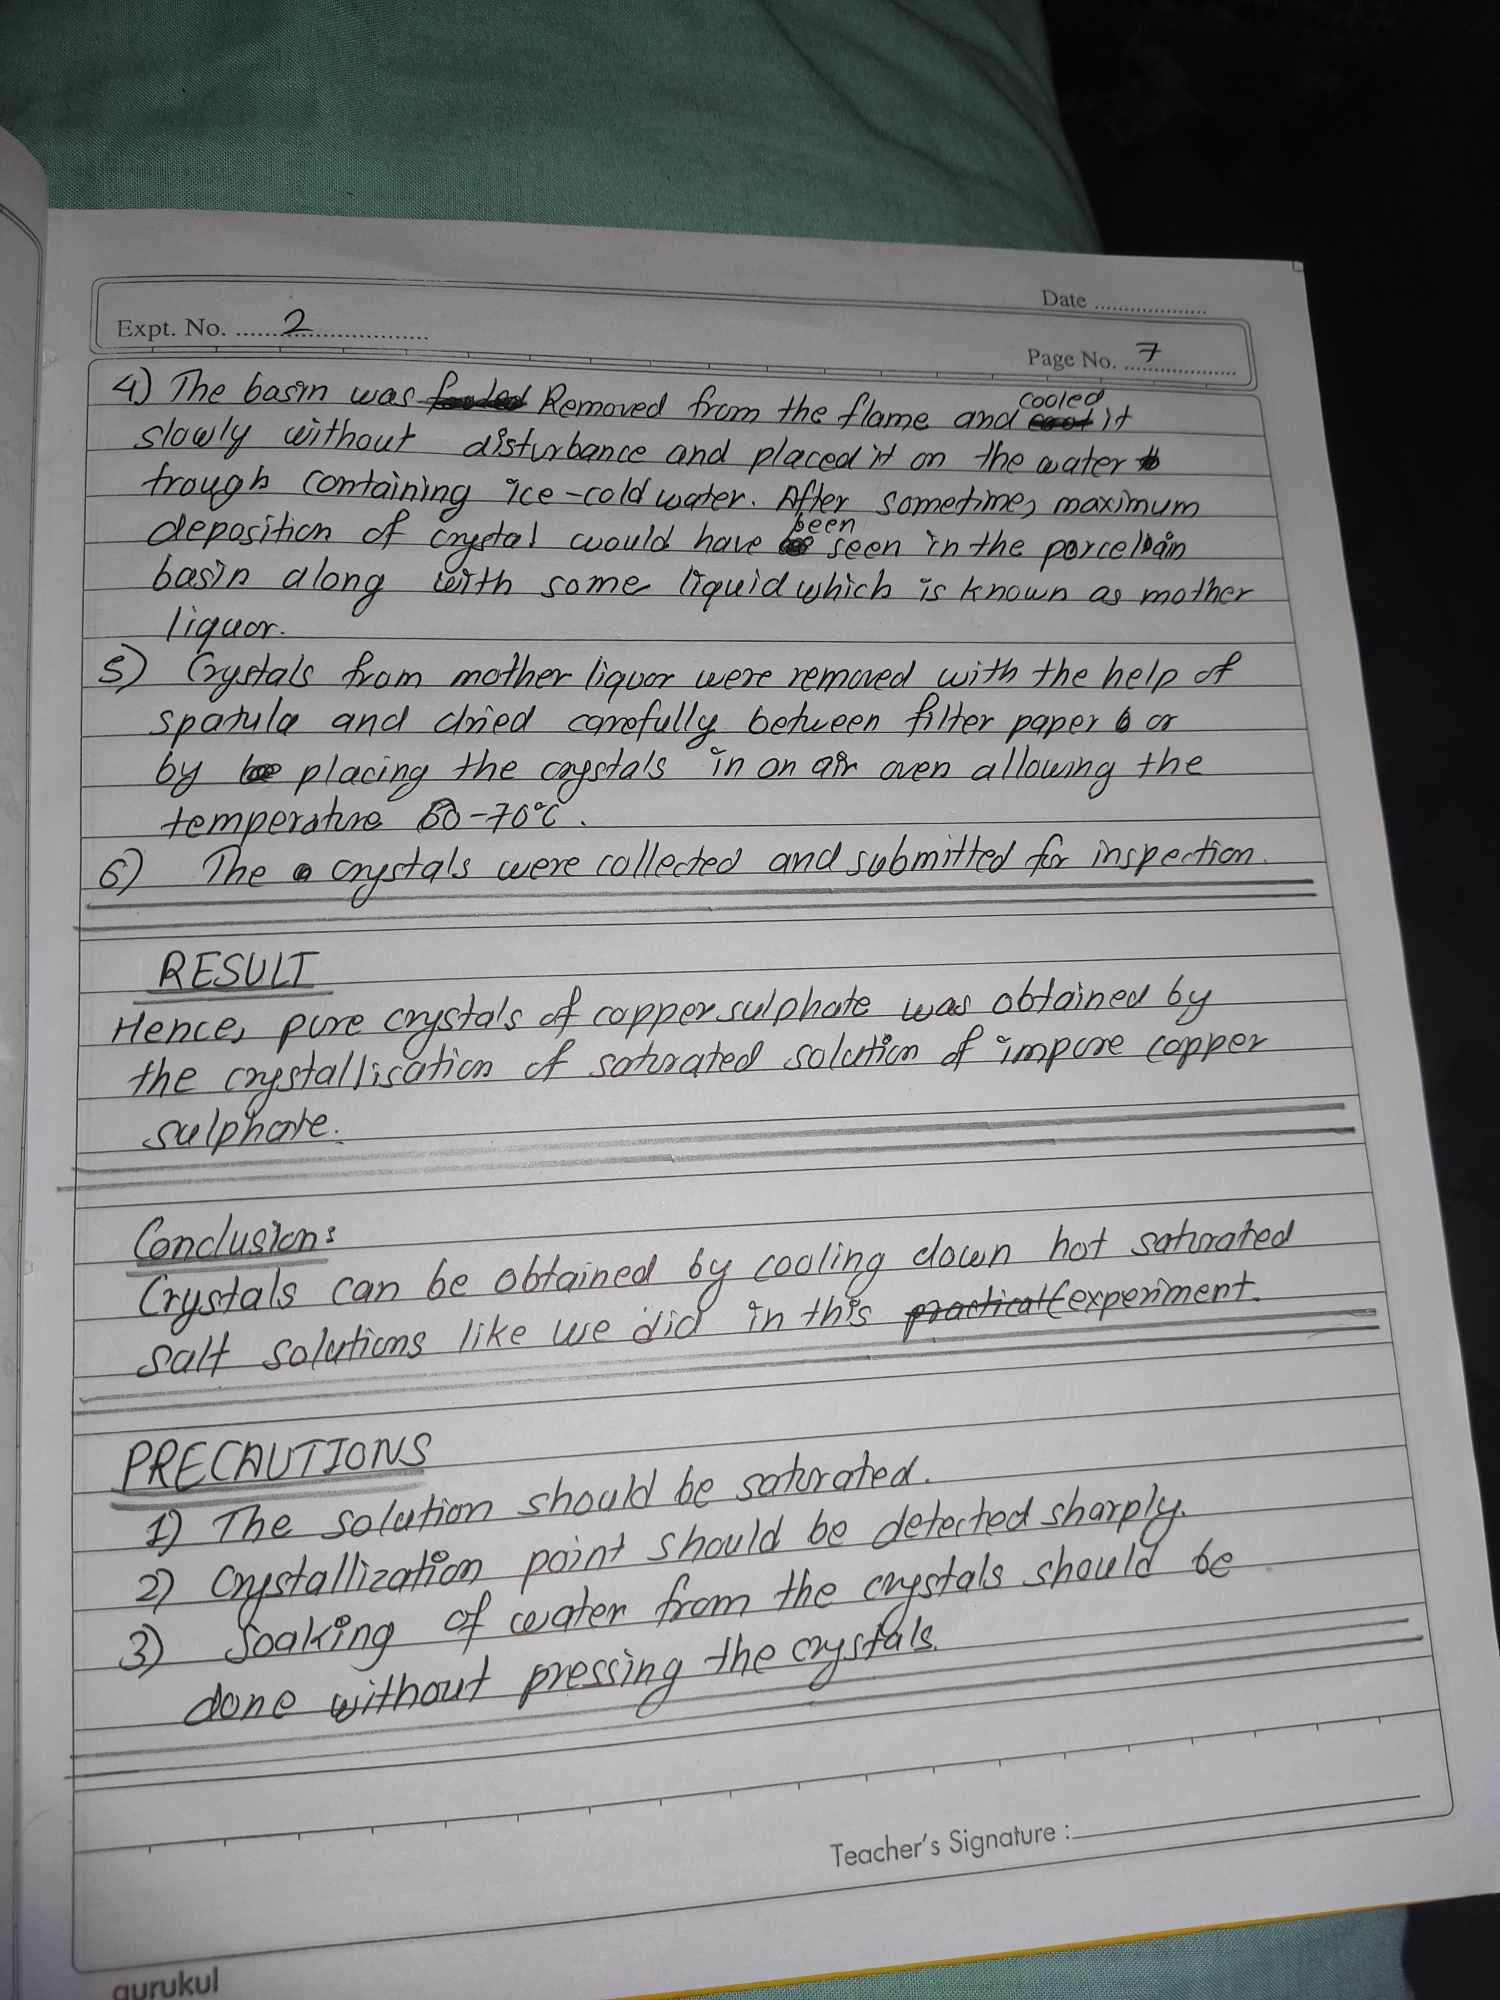 Date ....................
Expt. No. ......2..................
Page No. ...7..................
4) The basin was Removed from the flame and cooled it
slowly without disturbance and placed it on the water
trough containing ice-cold water. After sometime, maximum
deposition of crystal would have been seen in the porcelain
basin along with some liquid which is known as mother
liquor.
5) Crystals from mother liquor were removed with the help of
spatula and dried carefully between filter paper or
by placing the crystals in an air oven allowing the
temperature 60-70°C.
6) The crystals were collected and submitted for inspection.
RESULT
Hence, pure crystals of copper sulphate was obtained by
the crystallisation of saturated solution of impure copper
sulphate.
Conclusion:
Crystals can be obtained by cooling down hot saturated
salt solutions like we did in this practical experiment.
PRECAUTIONS
1) The solution should be saturated.
2) Crystallization point should be detected sharply.
3) Soaking of water from the crystals should be
done without pressing the crystals.
Teacher's Signature :
gurukul